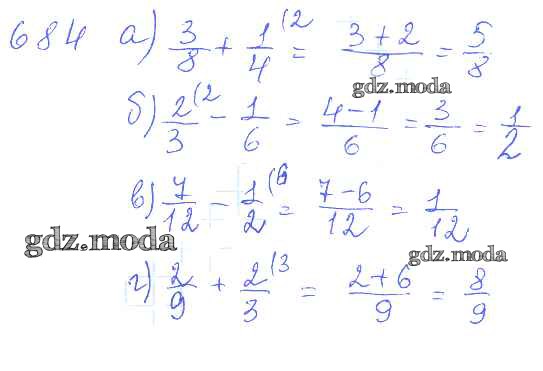 684 а) 3/8 + 1/4 (2 = 3+2/8 = 5/8
gdz.moda
б) 2/3 (2 - 1/6 = 4-1/6 = 3/6 = 1/2
в) 7/12 - 1/2 (6 = 7-6/12 = 1/12
gdz.moda
gdz.moda
г) 2/9 + 2/3 (3 = 2+6/9 = 8/9